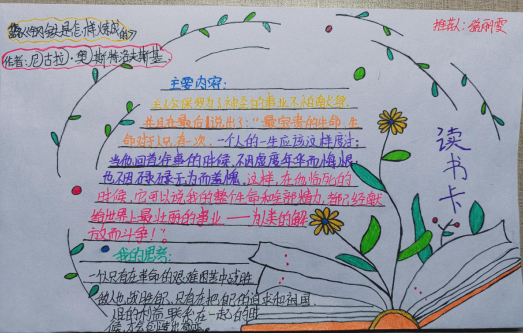 《钢铁是怎样炼成的》
作者:尼古拉·奥斯特洛夫斯基
推荐人:
读书卡
主要内容:
主人公保尔为了神圣的事业不怕
并且在最后说出了:“最宝贵的生命 生
命对于人只有一次。一个人的一生应该这样度过:
当他回首往事的时候,不因虚度年华而悔恨,
也不因碌碌无为而羞愧,这样,在他临死的
时候,它可以说我的整个生命和全部精力,都已经献
给世界上最壮丽的事业——为人类的解
放而斗争!”
我的思考:
一个人只有在革命的艰难困苦中战胜
敌人也战胜自己,只有在把自己的追求和祖国、
人民的利益联系在一起的时
候,才会创造出奇迹。